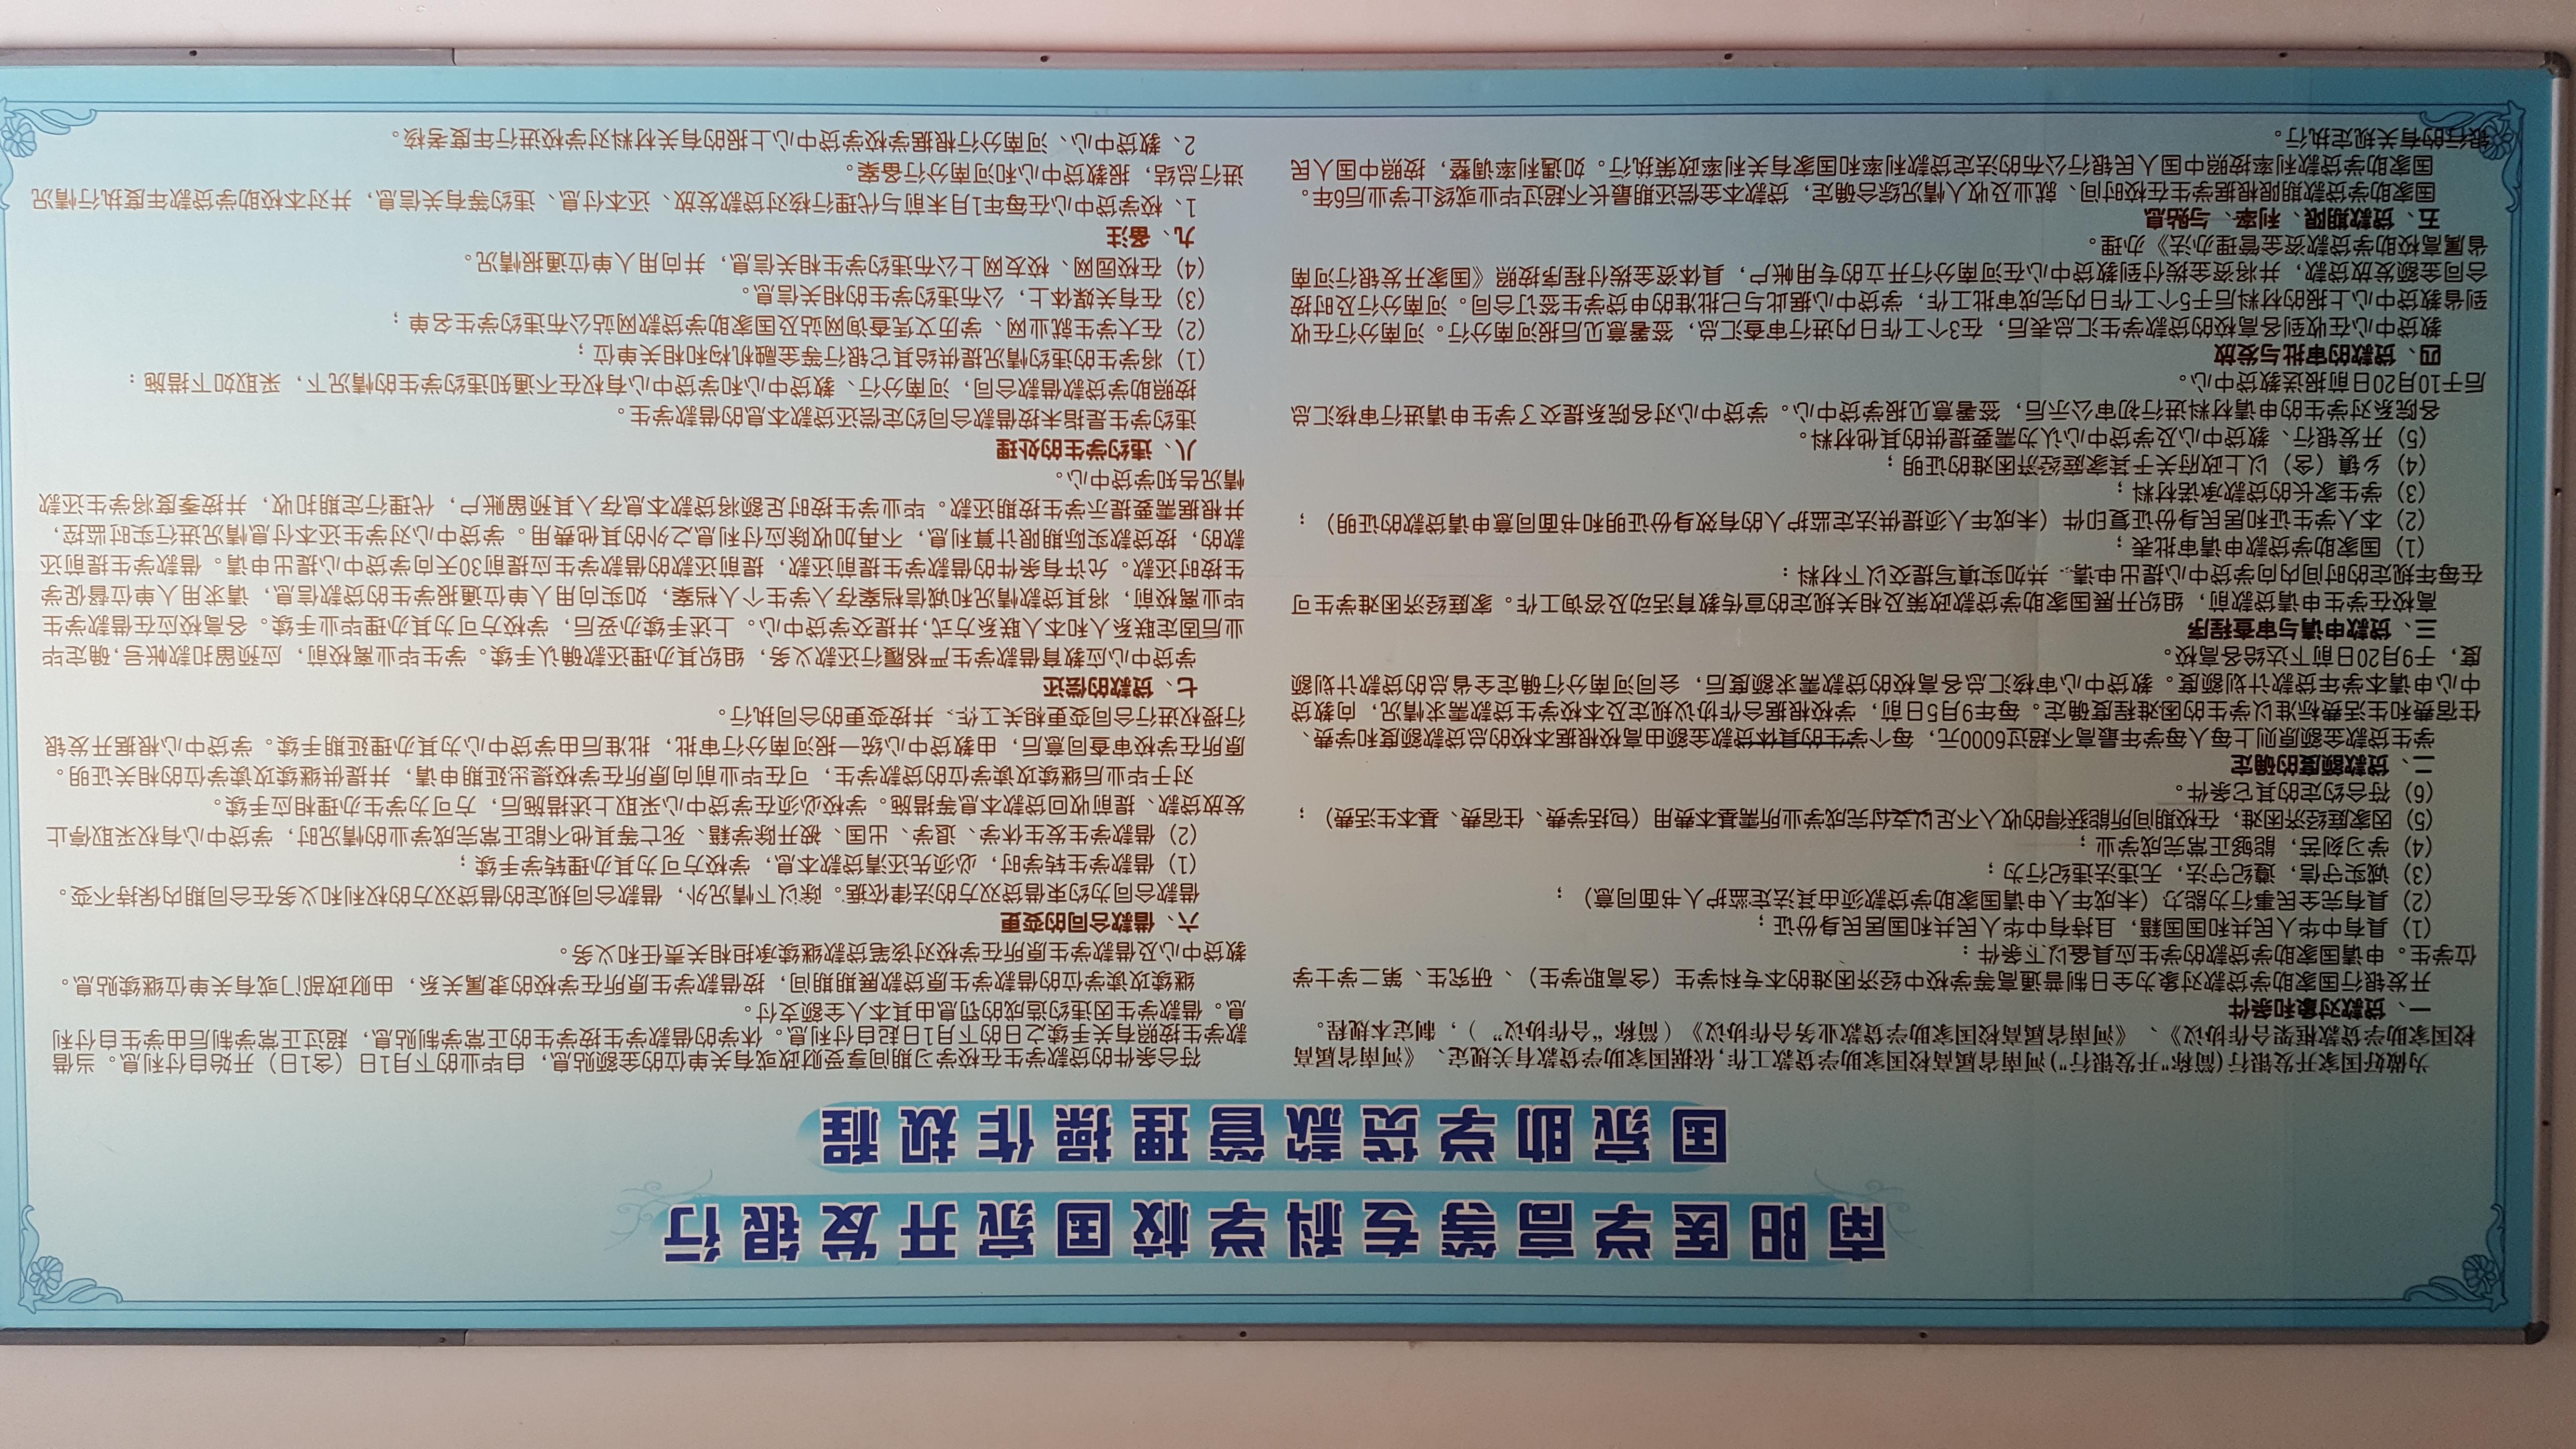 南阳医学高等专科学校国家开发银行
国家助学贷款管理操作规程
为做好国家开发银行(简称"开发银行")河南省属高校国家助学贷款工作,依据国家助学贷款有关规定、《河南省属高
校国家助学贷款框架合作协议》、《河南省属高校国家助学贷款业务合作协议》（简称“合作协议”），制定本规程。
一、贷款对象和条件
开发银行国家助学贷款对象为全日制普通高等学校中经济困难的本专科学生（含高职学生）、研究生、第二学士学
位学生。申请国家助学贷款的学生应具备以下条件：
（1）具有中华人民共和国国籍，且持有中华人民共和国居民身份证；
（2）具有完全民事行为能力（未成年人申请国家助学贷款须由其法定监护人书面同意）；
（3）诚实守信，遵纪守法，无违法违纪行为；
（4）学习刻苦，能够正常完成学业；
（5）因家庭经济困难，在校期间所能获得的收入不足以支付完成学业所需基本费用（包括学费、住宿费、基本生活费）；
（6）符合约定的其它条件。
二、贷款额度的确定
学生贷款金额原则上每人每学年最高不超过6000元，每个学生的具体贷款金额由高校根据本校的总贷款额度和学费、
住宿费和生活费标准以学生的困难程度确定。每年9月5日前，学校根据合作协议规定及本校学生贷款需求情况，向教贷
中心申请本学年贷款计划额度。教贷中心审核汇总各高校的贷款需求额度后，会同河南分行确定全省总的贷款计划额
度，于9月20日前下达给各高校。
三、贷款申请与审查程序
高校在学生申请贷款前，组织开展国家助学贷款政策及相关规定的宣传教育活动及咨询工作。家庭经济困难学生可
在每年规定的时间内向学贷中心提出申请，并如实填写提交以下材料：
（1）国家助学贷款申请审批表；
（2）本人学生证和居民身份证复印件（未成年人须提供法定监护人的有效身份证明和书面同意申请贷款的证明）；
（3）学生家长的贷款承诺材料；
（4）乡镇（含）以上政府关于其家庭经济困难的证明；
（5）开发银行、教贷中心及学贷中心认为需要提供的其他材料。
各院系对学生的申请材料进行初审公示后，签署意见报学贷中心。学贷中心对各院系提交了学生申请进行审核汇总
后于10月20日前报送教贷中心。
四、贷款的审批与发放
教贷中心在收到各高校的贷款学生汇总表后，在3个工作日内进行审查汇总，签署意见后报河南分行。河南分行在收
到省教贷中心上报的材料后于5个工作日内完成审批工作，学贷中心据此与已批准的申贷学生签订合同。河南分行及时按
合同金额发放贷款，并将资金拨付到教贷中心在河南分行开立的专用帐户，具体资金拨付程序按照《国家开发银行河南
省属高校助学贷款资金管理办法》办理。
五、贷款期限、利率、与贴息
国家助学贷款期限根据学生在校时间、就业及收入情况综合确定，贷款本金偿还期最长不超过毕业或终止学业后6年。
国家助学贷款利率按照中国人民银行公布的法定贷款利率和国家有关利率政策执行。如遇利率调整，按照中国人民
银行的有关规定执行。
符合条件的贷款学生在校学习期间享受财政或有关单位的全额贴息，自毕业的下月1日（含1日）开始自付利息。当借
款学生按照有关手续之日的下月1日起自付利息。休学的借款学生按学生的正常学制贴息，超过正常学制后由学生自付利
息。借款学生因违约造成的罚息由其本人全额支付。
继续攻读学位的借款学生原贷款展期期间，按借款学生原所在学校的隶属关系，由财政部门或有关单位继续贴息。
教贷中心及借款学生原所在学校对该笔贷款继续承担相关责任和义务。
六、借款合同的变更
借款合同为约束借贷双方的法律依据。除以下情况外，借款合同规定的借贷双方的权利和义务在合同期内保持不变。
（1）借款学生转学时，必须先还清贷款本息，学校方可为其办理转学手续；
（2）借款学生发生休学、退学、出国、被开除学籍、死亡等其他不能正常完成学业的情况时，学贷中心有权采取停止
发放贷款、提前收回贷款本息等措施。学校必须在学贷中心采取上述措施后，方可为学生办理相应手续。
对于毕业后继续攻读学位的贷款学生，可在毕业前向原所在学校提出延期申请，并提供继续攻读学位的相关证明。
原所在学校审查同意后，由教贷中心统一报河南分行审批，批准后由学贷中心为其办理延期手续。学贷中心根据开发银
行授权进行合同变更相关工作，并按变更的合同执行。
七、贷款的偿还
学贷中心应教育借款学生严格履行还款义务，组织其办理还款确认手续。学生毕业离校前，应预留扣款帐号,确定毕
业后固定联系人和本人联系方式,并提交学贷中心。上述手续办妥后，学校方可为其办理毕业手续。各高校应在借款学生
毕业离校前，将其贷款情况和诚信档案存入学生个人档案，如实向用人单位通报学生的贷款信息，请求用人单位督促学
生按时还款。允许有条件的借款学生提前还款，提前还款的借款学生应提前30天向学贷中心提出申请。借款学生提前还
款的，按贷款实际期限计算利息，不再加收除应付利息之外的其他费用。学贷中心对学生还本付息情况进行实时监控，
并根据需要提示学生按期还款。毕业学生按时足额将贷款本息存入其预留账户，代理行定期扣收，并按季度将学生还款
情况告知学贷中心。
八、违约学生的处理
违约学生是指未按借款合同约定偿还贷款本息的借款学生。
按照助学贷款借款合同，河南分行、教贷中心和学贷中心有权在不通知违约学生的情况下，采取如下措施：
（1）将学生的违约情况提供给其它银行等金融机构和相关单位；
（2）在大学生就业网、学历文凭查询网站及国家助学贷款网站公布违约学生名单；
（3）在有关媒体上，公布违约学生的相关信息。
（4）在校园网、校友网上公布违约学生相关信息，并向用人单位通报情况。
九、备注
1、校学贷中心在每年1月末前与代理行核对贷款发放、还本付息、违约等有关信息，并对本校助学贷款年度执行情况
进行总结，报教贷中心和河南分行备案。
2、教贷中心、河南分行根据学校学贷中心上报的有关材料对学校进行年度考核。